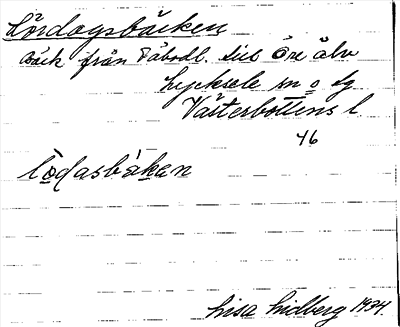 Lördagsbäcken
Bäck från Fäbodl. till Öre älv
Lycksele sn o dg
Västerbottens l.
46
lò̱dasbä́ḵan
Lisa Lidberg 1934.